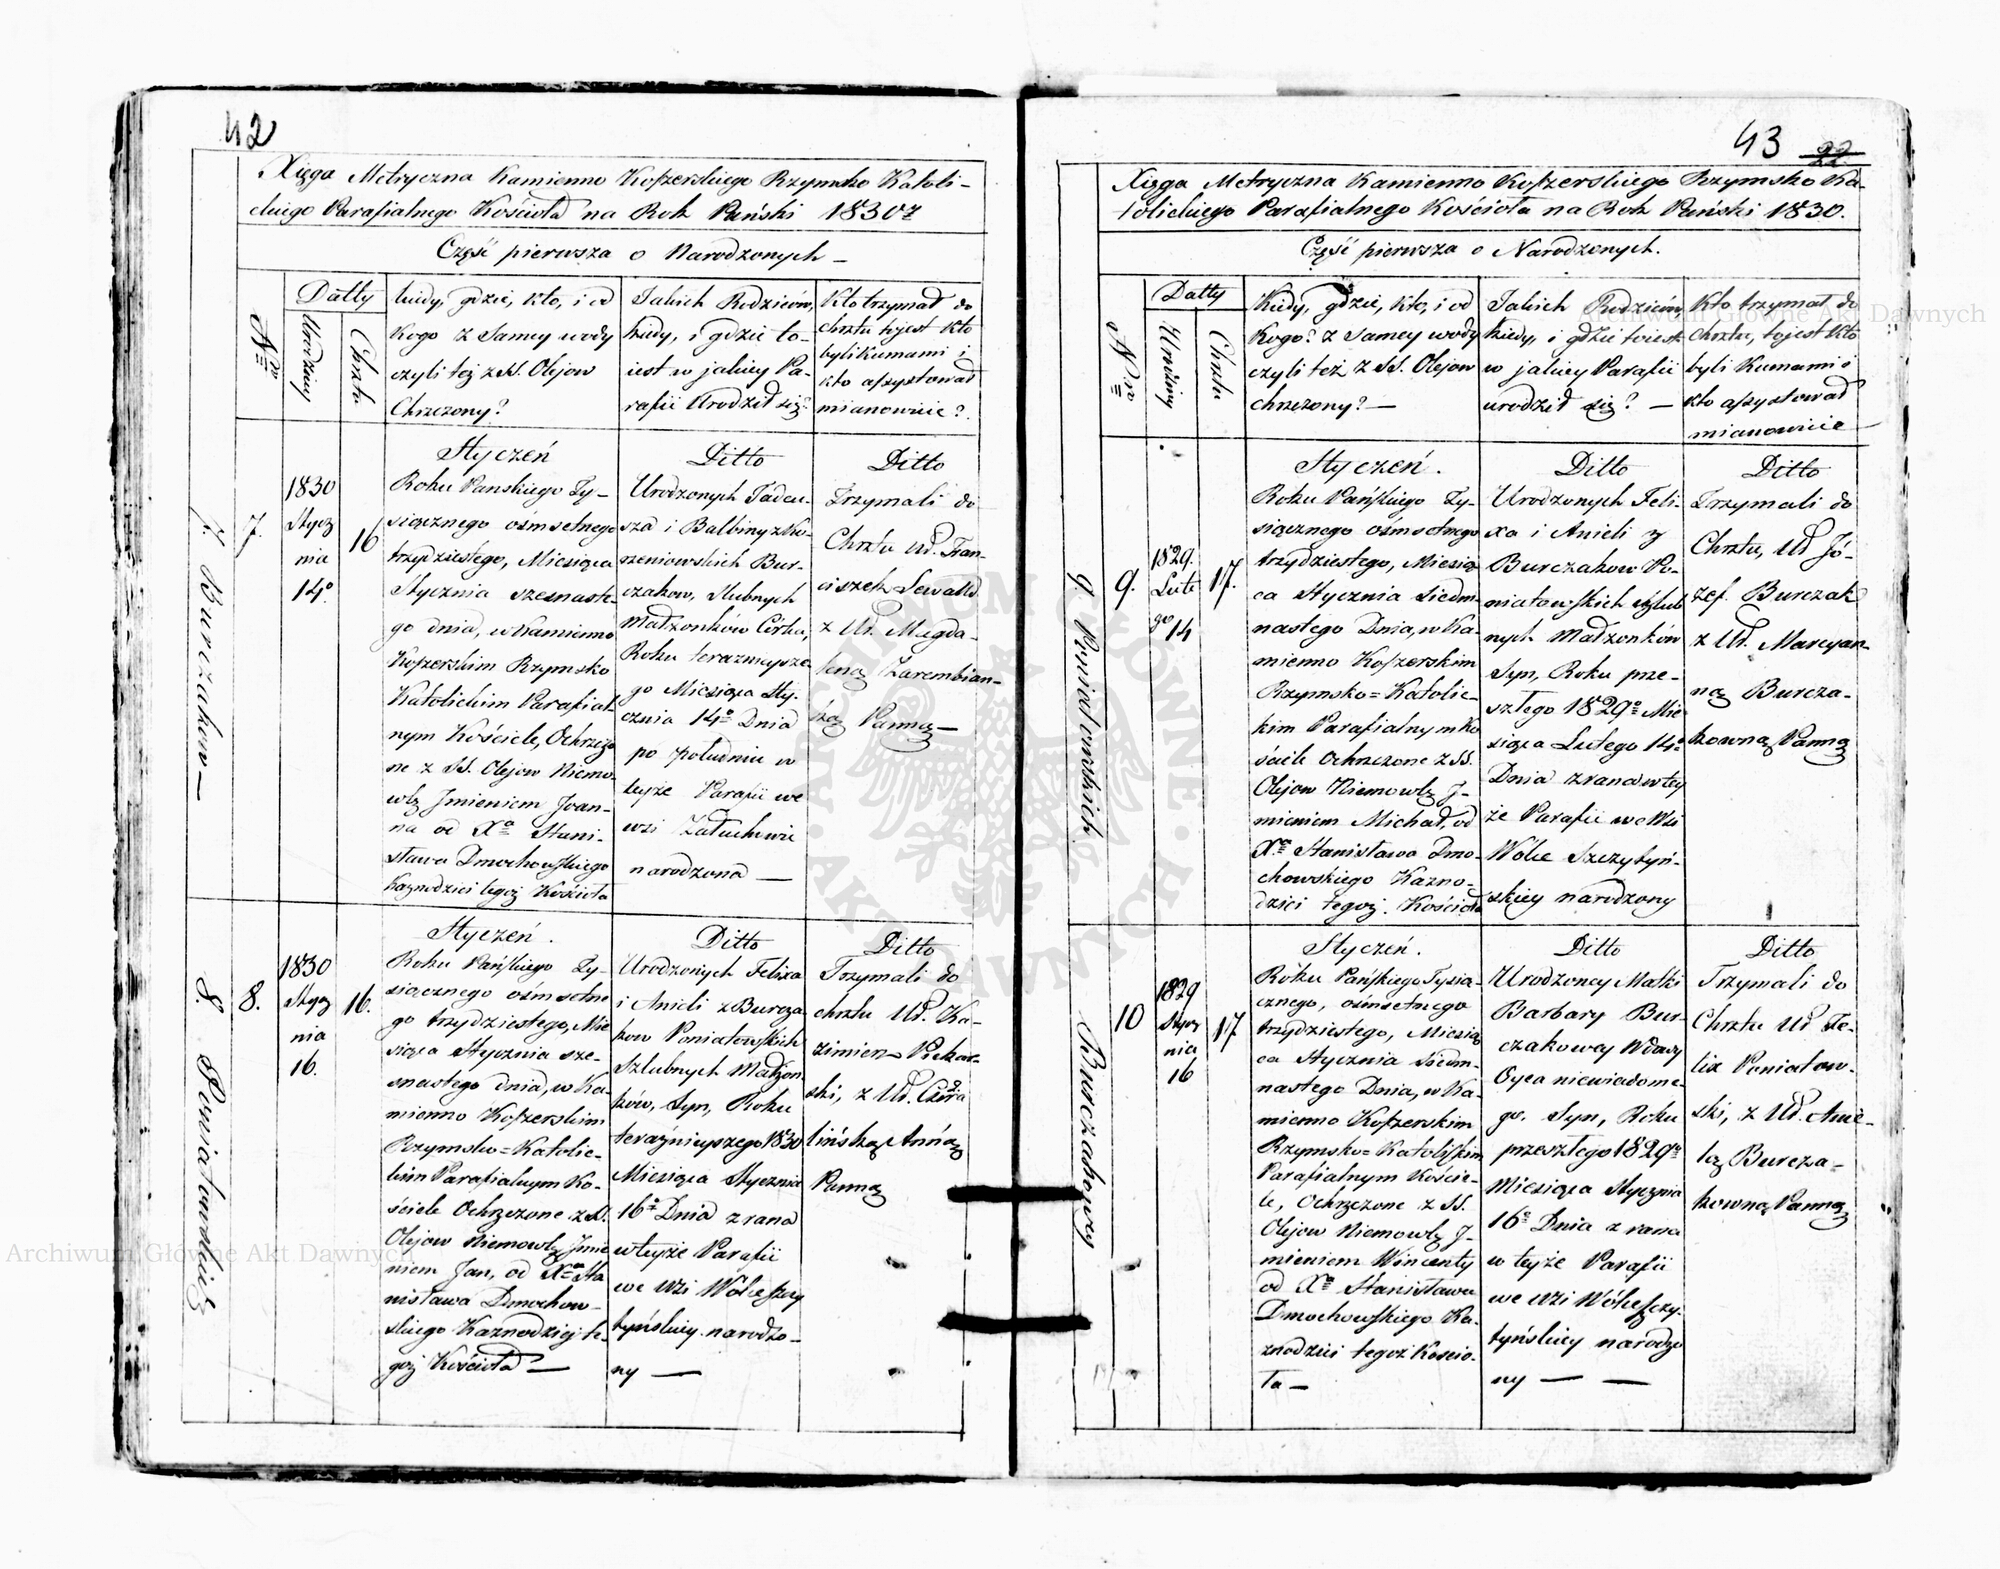 42
Xięga Metryczna Kamienno Koszerskiego Rzymsko Katoli-
ckiego Parafialnego Kościoła na Rok Pański 1830
Część pierwsza o Narodzonych –
Nro
Datty
Urodziny
Chrztu
kiedy, gdzie, kto, i od
Kogo z Samey wody
czyli też z SS. Olejow
Chrzczony?
Jakich Rodziców,
kiedy, i gdzie to-
iest w jakiey Pa-
rafii Urodził się?
Kto trzymał do
chrztu tojest kto
byli kumami i
kto assystował
mianowicie?
7. Burczakow –
7.
1830
Stycz
nia
14º
16
Styczeń
Roku Panskiego Ty-
siącznego ośmsetnego
trzydziestego, Miesiąca
Stycznia szesnaste-
go dnia, w Kamienno
Koszerskim Rzymsko
Katolickim Parafial-
nym Kościele, Ochrzczo
ne z SS. Olejow Niemo-
wlę Jmieniem Joan-
na od Xa Stani-
sława Dmochowskiego
Kaznodziei tegoż Kościoła
Ditto
Urodzonych Tadeu-
sza i Balbiny z Ko-
rzeniowskich Bur-
czakow, Slubnych
Małżonków Córka,
Roku terazniejsze-
go Miesiąca Sty-
cznia 14º Dnia
po południu w
teyże Parafii we
wsi Załuchowie
narodzona —
Ditto
Trzymali do
Chrztu Ur. Fran-
ciszek Lewald
z Ur. Magda-
leną Zarembian-
ką Panną —
8. Poniatowskich
8.
1830
Stycz
nia
16.
16.
Styczeń.
Roku Pańskiego Ty-
siącznego ośmsetne
go trzydziestego, Mie
siąca Stycznia sze-
snastego dnia, w Ka-
mienno Koszerskim
Rzymsko=Katolic-
kim Parafialnym Ko-
ściele Ochrzczone z SS.
Olejow Niemowlę Jmie
niem Jan, od Xa Sta
nisława Dmochow-
skiego Kaznodziei te-
goż Kościoła —
Ditto
Urodzonych Felixa
i Anieli z Burcza
kow Poniatowskich
Szlubnych Małżon
ków, Syn, Roku
teraźnieyszego 1830
Miesiąca Stycznia
16º Dnia z rana
w teyże Parafii
we Wsi Wólce Szczy
tyńskiey narodzo-
ny —
Ditto
Trzymali do
chrztu Ur. Ka-
zimierz Piekar-
ski, z Ur.
Anną
Panną
43 22
Xięga Metryczna Kamienno Koszerskiego Rzymsko Ka-
tolickiego Parafialnego Kościoła na Rok Pański 1830.
Część pierwsza o Narodzonych.
Nro
Datty
Urodziny
Chrztu
Kiedy, gdzie, kto, i od
Kogo? z Samey wody
czyli też z SS. Olejow
chrzczony? —
Jakich Rodziców
kiedy, i gdzie toiest
w jakiey Parafii
urodził się? —
Kto trzymał do
Chrztu, tojest kto
byli Kumami i
kto assystował
mianowicie
9. Poniatowskich.
9.
1829.
Lute
go 14
17.
Styczeń.
Roku Pańskiego Ty-
siącznego ośmsetnego
trzydziestego, Miesią
ca Stycznia Siedm-
nastego Dnia, w Ka-
mienno Koszerskim
Rzymsko=Katolic-
kim Parafialnym Ko
ściele Ochrzczone z SS.
Olejow Niemowlę J-
mieniem Michał, od
Xa Stanisława Dmo-
chowskiego Kazno-
dziei tegoż. Kościoła
Ditto
Urodzonych Feli-
xa i Anieli z
Burczakow Po-
niatowskich Szlub
nych Małżonków
Syn, Roku prze-
szłego 1829º Mie
siąca Lutego 14º
Dnia z rana w tey
że Parafii we Wsi
Wólce Szczytyń-
skiey narodzony
Ditto
Trzymali do
Chrztu, Ur Jó-
zef. Burczak
z Ur. Marcyan-
ną Burcza-
kowną Panną
10 Burczakowey
10
1829
Stycz
nia
16
17
Styczeń.
Roku Pańskiego Tysią-
cznego, ośmsetnego
trzydziestego, Miesią
ca Stycznia Siedm-
nastego Dnia, w Ka-
mienno Koszerskim
Rzymsko=Katolickim
Parafialnym Koście-
le, Ochrzczone z SS.
Olejow Niemowlę J-
mieniem Wincenty
od Xa Stanisława
Dmochowskiego Ka-
znodziei tegoż Koscio-
ła —
Ditto
Urodzoney Matki
Barbary Bur-
czakowey Wdowy
Oyca niewiadome-
go. Syn, Roku
przeszłego 1829º
Miesiąca Stycznia
16º Dnia z rana
w teyże Parafii
we wsi Wólce Szczy-
tyńskiey narodzo
ny — —
Ditto
Trzymali do
Chrztu Ur Fe-
lix Poniatow-
ski, z Ur. Anie-
lą Burcza-
kowną Panną
Archiwum Główne Akt Dawnych
Archiwum Główne Akt Dawnych
ARCHIWUM GŁÓWNE AKT DAWNYCH